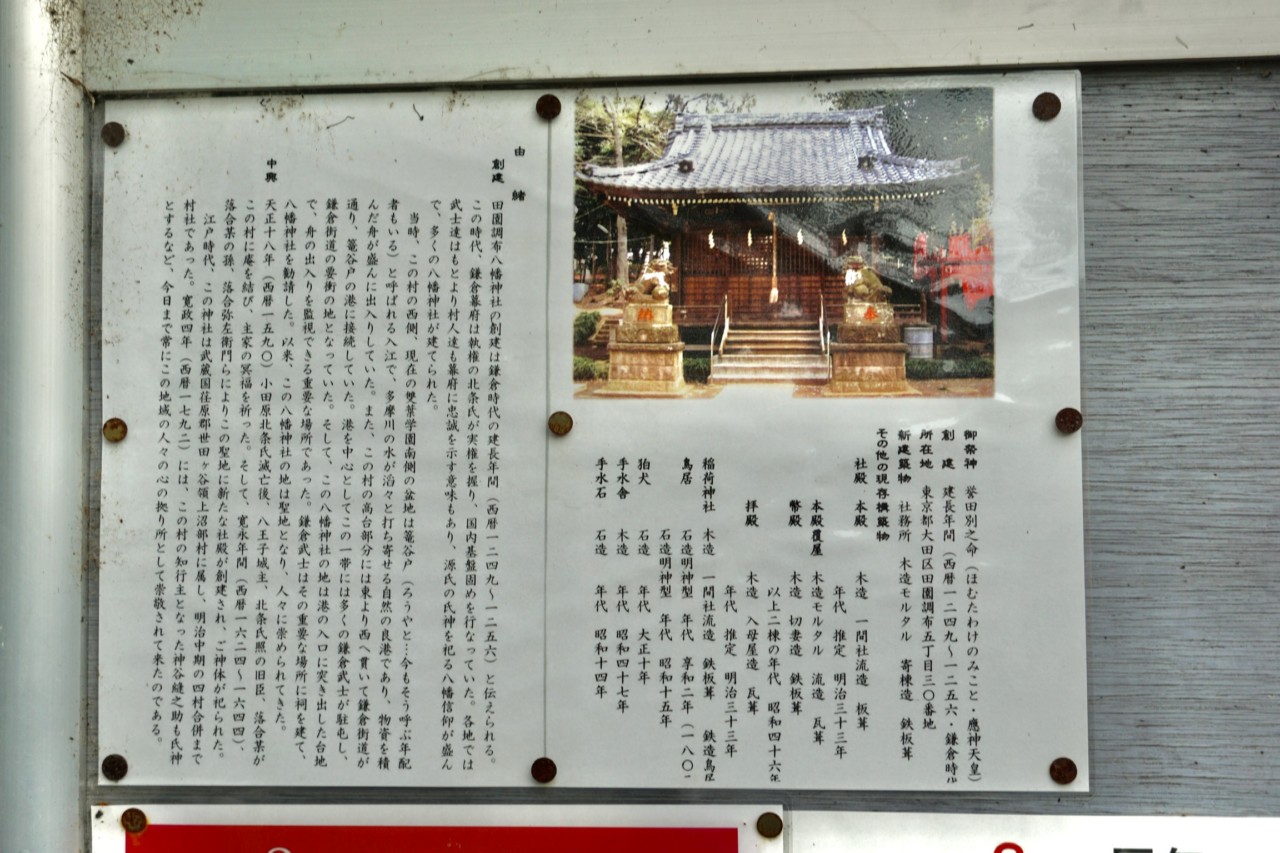 御祭神 誉田別之命（ほむたわけのみこと・應神天皇）
創建 建長年間（西暦一二四九～一二五六・鎌倉時
所在地 東京都大田区田園調布五丁目三〇番地
新建築物 社務所 木造モルタル 寄棟造 鉄板葺
その他の現存構築物
社殿 本殿 木造 一間社流造 板葺
年代 推定 明治三十三年
本殿覆屋 木造モルタル 流造 瓦葺
幣殿 木造 切妻造 鉄板葺
以上二棟の年代 昭和四十六年
拝殿 木造 入母屋造 瓦葺
年代 推定 明治三十三年
稲荷神社 木造 一間社流造 鉄板葺 鉄造鳥居
鳥居 石造明神型 年代 享和二年（一八〇二
石造明神型 年代 昭和十五年
狛犬 石造 年代 大正十年
手水舎 木造 年代 昭和四十七年
手水石 石造 年代 昭和十四年
由緒
創建 田園調布八幡神社の創建は鎌倉時代の建長年間（西暦一二四九～一二五六）と伝えられる。
この時代、鎌倉幕府は執権の北条氏が実権を握り、国内基盤固めを行なっていた。各地では
武士達はもとより村人達も幕府に忠誠を示す意味もあり、源氏の氏神を祀る八幡信仰が盛ん
で、多くの八幡神社が建てられた。
当時、この村の西側、現在の雙葉学園南側の盆地は籠谷戸（ろうやと…今もそう呼ぶ年配
者もいる）と呼ばれる入江で、多摩川の水が滔々と打ち寄せる自然の良港であり、物資を積
んだ舟が盛んに出入りしていた。また、この村の高台部分には東より西へ貫いて鎌倉街道が
通り、籠谷戸の港に接続していた。港を中心としてこの一帯には多くの鎌倉武士が駐屯し、
鎌倉街道の要衝の地となっていた。そして、この八幡神社の地は港の入口に突き出した台地
で、舟の出入りを監視できる重要な場所であった。鎌倉武士はその重要な場所に祠を建て、
八幡神社を勧請した。以来、この八幡神社の地は聖地となり、人々に崇められてきた。
中興 天正十八年（西暦一五九〇）小田原北条氏滅亡後、八王子城主、北条氏照の旧臣、落合某が
この村に庵を結び、主家の冥福を祈った。そして、寛永年間（西暦一六二四～一六四四）、
落合某の孫、落合弥左衛門らによりこの聖地に新たな社殿が創建され、ご神体が祀られた。
江戸時代、この神社は武蔵国荏原郡世田ヶ谷領上沼部村に属し、明治中期の四村合併まで
村社であった。寛政四年（西暦一七九二）には、この村の知行主となった神谷縫之助も氏神
とするなど、今日まで常にこの地域の人々の心の拠り所として崇敬されて来たのである。